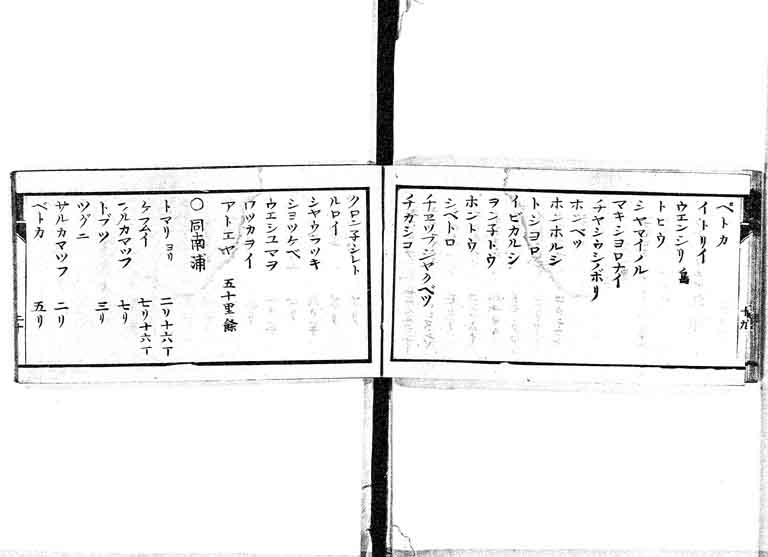 ベトカ
イトリイ
ウエンシリ島
トヒウ
シヤマイノル
マキシヨロナイ
チヤシウシノボリ
ホンベツ
ホンホルシ
トシヨロ
イビカルシ
ヲン子トウ
ホントウ
シベトロ
チヱツフンシヤクベツ
チカシコ
十九
クロン子シレト
ルロイ
シヤウラツキ
シヨツケベ
ウエシユマヲ
ワツカヲイ
アトエヤ 五十里餘
〇同南浦
トマリヨリ 二リ十六丁
ケフムイ 七リ十六丁
ルカマツフ 七リ
トブツ 三リ
ツグニ
サルカマツフ 二リ
ベトカ 五リ
二十